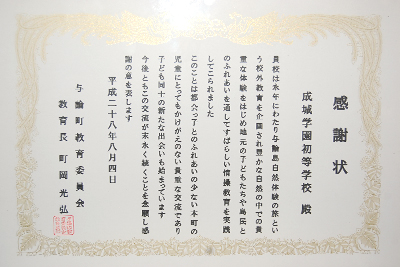 感謝状
成城学園初等学校 殿
貴校は永年にわたり与論島自然体験の旅とい
う校外教育を企画され豊かな自然の中での貴
重な体験をはじめ地元の子どもたちや島民と
のふれあいを通してすばらしい情操教育を実践
してこられました
このことは都会っ子とのふれあいの少ない本町の
児童にとってもかけがえのない貴重な交流であり
子ども同士の新たな出会いも始まっています
今後ともこの交流が末永く続くことを念願し感
謝の意を表します
平成二十八年八月四日
与論町教育委員会
教育長 町岡光弘